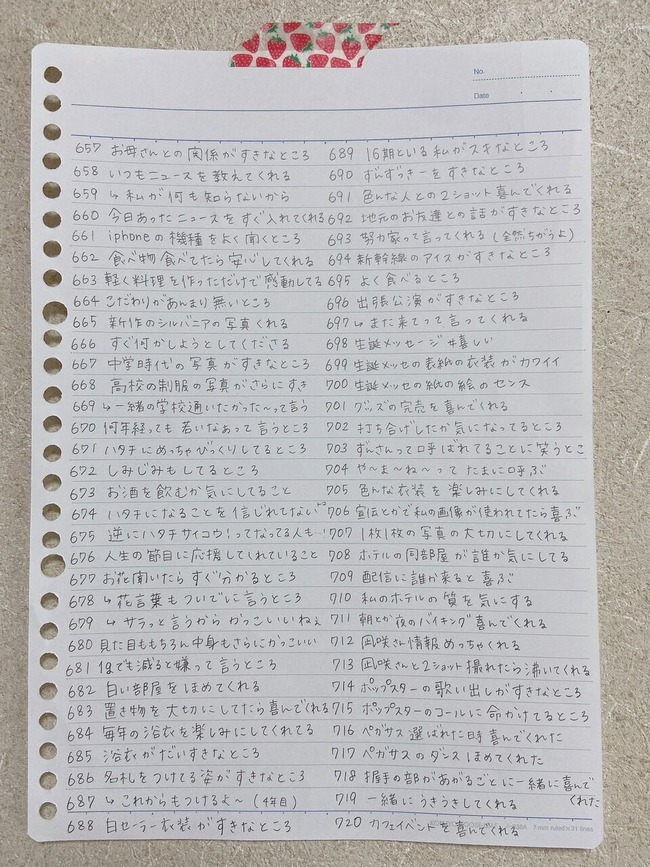 No.
Date
657 お母さんとの関係がすきなところ
658 いつもニュースを教えてくれる
659 ↳ 私が何も知らないから
660 今日あったニュースをすぐ入れてくれる
661 iphoneの機種をよく聞くところ
662 食べ物食べてたら安心してくれる
663 軽く料理を作っただけで感動してる
664 こだわりがあんまり無いところ
665 新作のシルバニアの写真くれる
666 すぐ何かしようとしてくださる
667 中学時代の写真がすきなところ
668 高校の制服の写真がさらにすき
669 ↳ 一緒の学校通いたかった〜って言う
670 何年経っても若いなあって言うところ
671 ハタチにめっちゃびっくりしてるところ
672 しみじみもしてるところ
673 お酒を飲むか気にしてること
674 ハタチになることを信じれてない
675 逆にハタチサイコウ!ってなってる人も
676 人生の節目に応援してくれていること
677 お花聞いたらすぐ分かるところ
678 ↳ 花言葉もついでに言うところ
679 ↳ サラッと言うからかっこいいねぇ
680 見た目ももちろん中身もさらにかっこいい
681 1gでも減ると嫌って言うところ
682 白い部屋をほめてくれる
683 置き物を大切にしてたら喜んでくれる
684 毎年の浴衣を楽しみにしてくれてる
685 浴衣がだいすきなところ
686 名札をつけてる姿がすきなところ
687 ↳ これからもつけるよ〜 (4年目)
688 白セーラー衣装がすきなところ
689 16期といる私がスキなところ
690 ずんずっきーをすきなところ
691 色んな人との2ショット喜んでくれる
692 地元のお友達との話がすきなところ
693 努力家って言ってくれる (全然ちがうよ)
694 新幹線のアイスがすきなところ
695 よく食べるところ
696 出張公演がすきなところ
697 ↳ また来てって言ってくれる
698 生誕メッセージ嬉しい
699 生誕メッセの表紙の衣装がカワイイ
700 生誕メッセの紙の絵のセンス
701 グッズの完売を喜んでくれる
702 打ち合げしたか気になってるところ
703 ずんさんって呼ばれてることに笑うとこ
704 や〜ま〜ね〜ってたまに呼ぶ
705 色んな衣装を楽しみにしてくれる
706 宣伝とかで私の画像が使われてたら喜ぶ
707 1枚1枚の写真の大切にしてくれる
708 ホテルの同部屋が誰か気にしてる
709 配信に誰か来ると喜ぶ
710 私のホテルの質を気にする
711 朝とか夜のバイキング喜んでくれる
712 凪咲さん情報めっちゃくれる
713 凪咲さんと2ショット撮れたら沸いてくれる
714 ポップスターの歌い出しがすきなところ
715 ポップスターのコールに命かけてるところ
716 ペガサス選ばれた時喜んでくれた
717 ペガサスのダンスほめてくれた
718 握手の部があがるごとに一緒に喜んで
くれた
719 一緒にうきうきしてくれる
720 カフェイベントを喜んでくれる
7mm ruled×31 lines